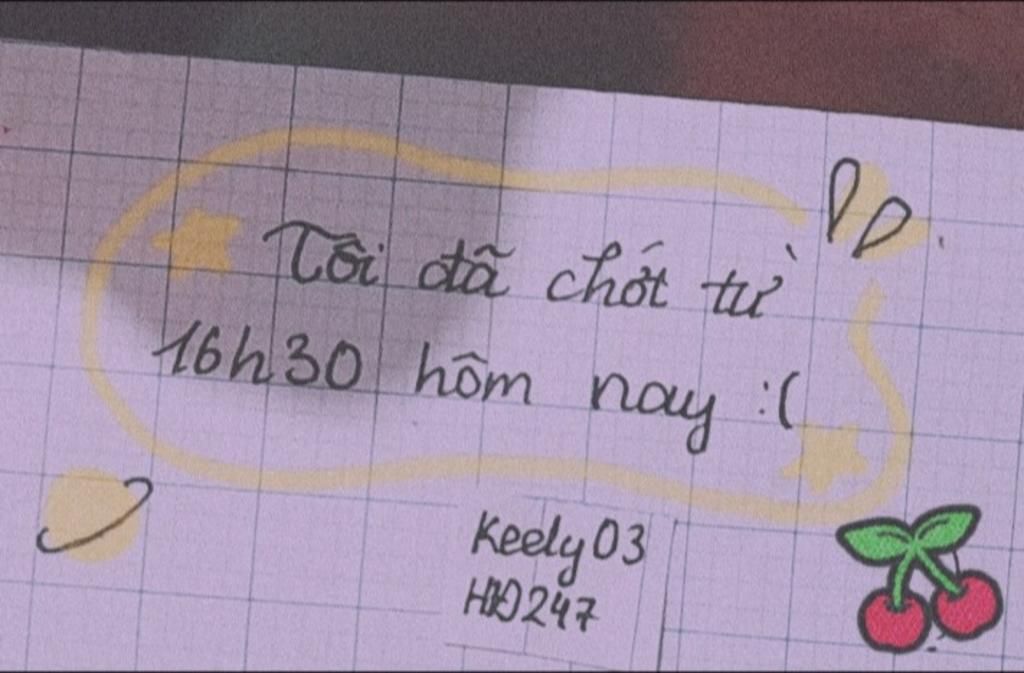 Tôi đã chót từ
16h30 hôm nay :(
Keely03
HĐ247